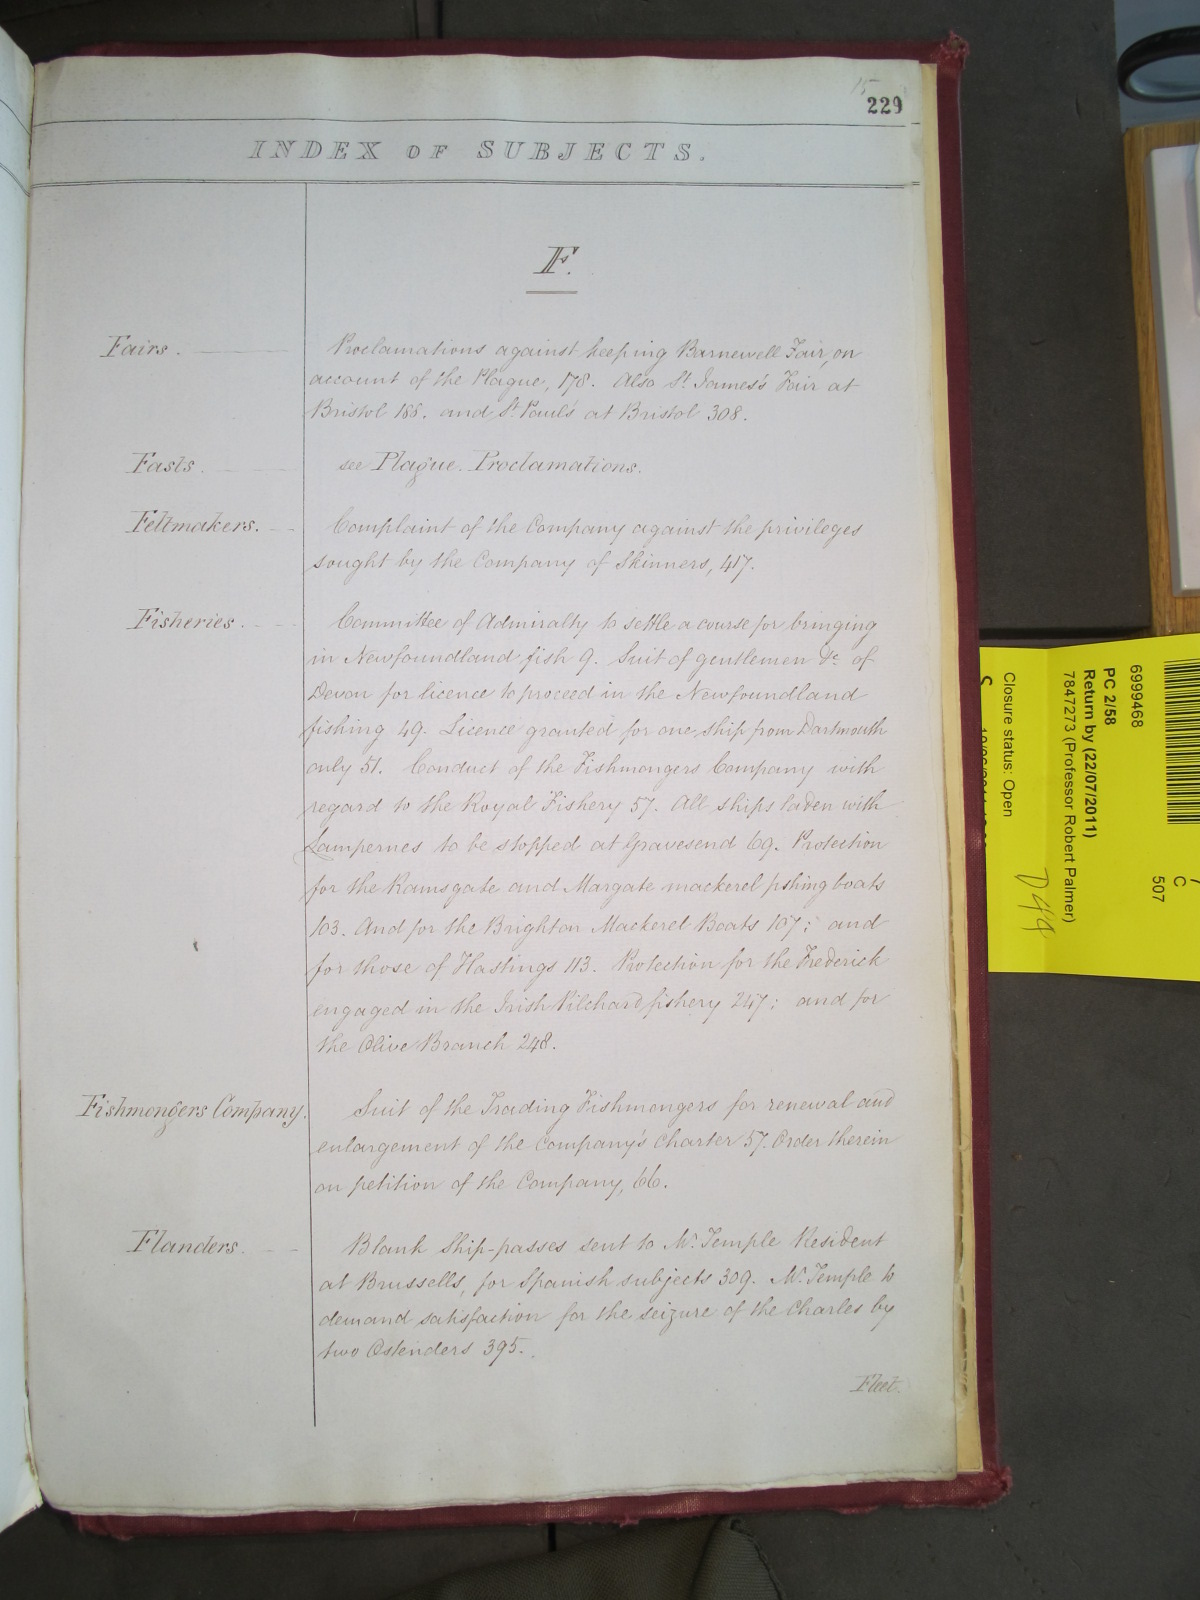 15
229
INDEX OF SUBJECTS.
F.
Fairs. Proclamations against keeping Barnewell Fair, on
account of the Plague, 178. Also St. James's Fair at
Bristol 188. and St Paul's at Bristol 308.
Fasts. see Plague. Proclamations.
Feltmakers. Complaint of the Company against the privileges
sought by the Company of Skinners, 417.
Fisheries. Committee of Admiralty to settle a course for bringing
in Newfoundland fish 9. Suit of gentlemen &c of
Devon for licence to proceed in the Newfoundland
fishing 49. Licence granted for one ship from Dartmouth
only 51. Conduct of the Fishmongers Company with
regard to the Royal Fishery 57. All ships laden with
Lampernes to be stopped at Gravesend 69. Protection
for the Ramsgate and Margate mackerel fishing boats
103. And for the Brighton Mackerel Boats 107; and
for those of Hastings 113. Protection for the Frederick
engaged in the Irish Pilchard fishery 247; and for
the Olive Branch 248.
Fishmongers Company. Suit of the Trading Fishmongers for renewal and
enlargement of the Company's Charter 57. Order therein
on petition of the Company, 66.
Flanders. Blank Ship-passes sent to Mr. Temple Resident
at Brussells, for Spanish subjects 309. Mr. Temple to
demand satisfaction for the seizure of the Charles by
two Ostenders 395.
Fleet.
6999468
PC 2/58
Return by (22/07/2011)
7847273 (Professor Robert Palmer)
Closure status: Open
C
507
D49